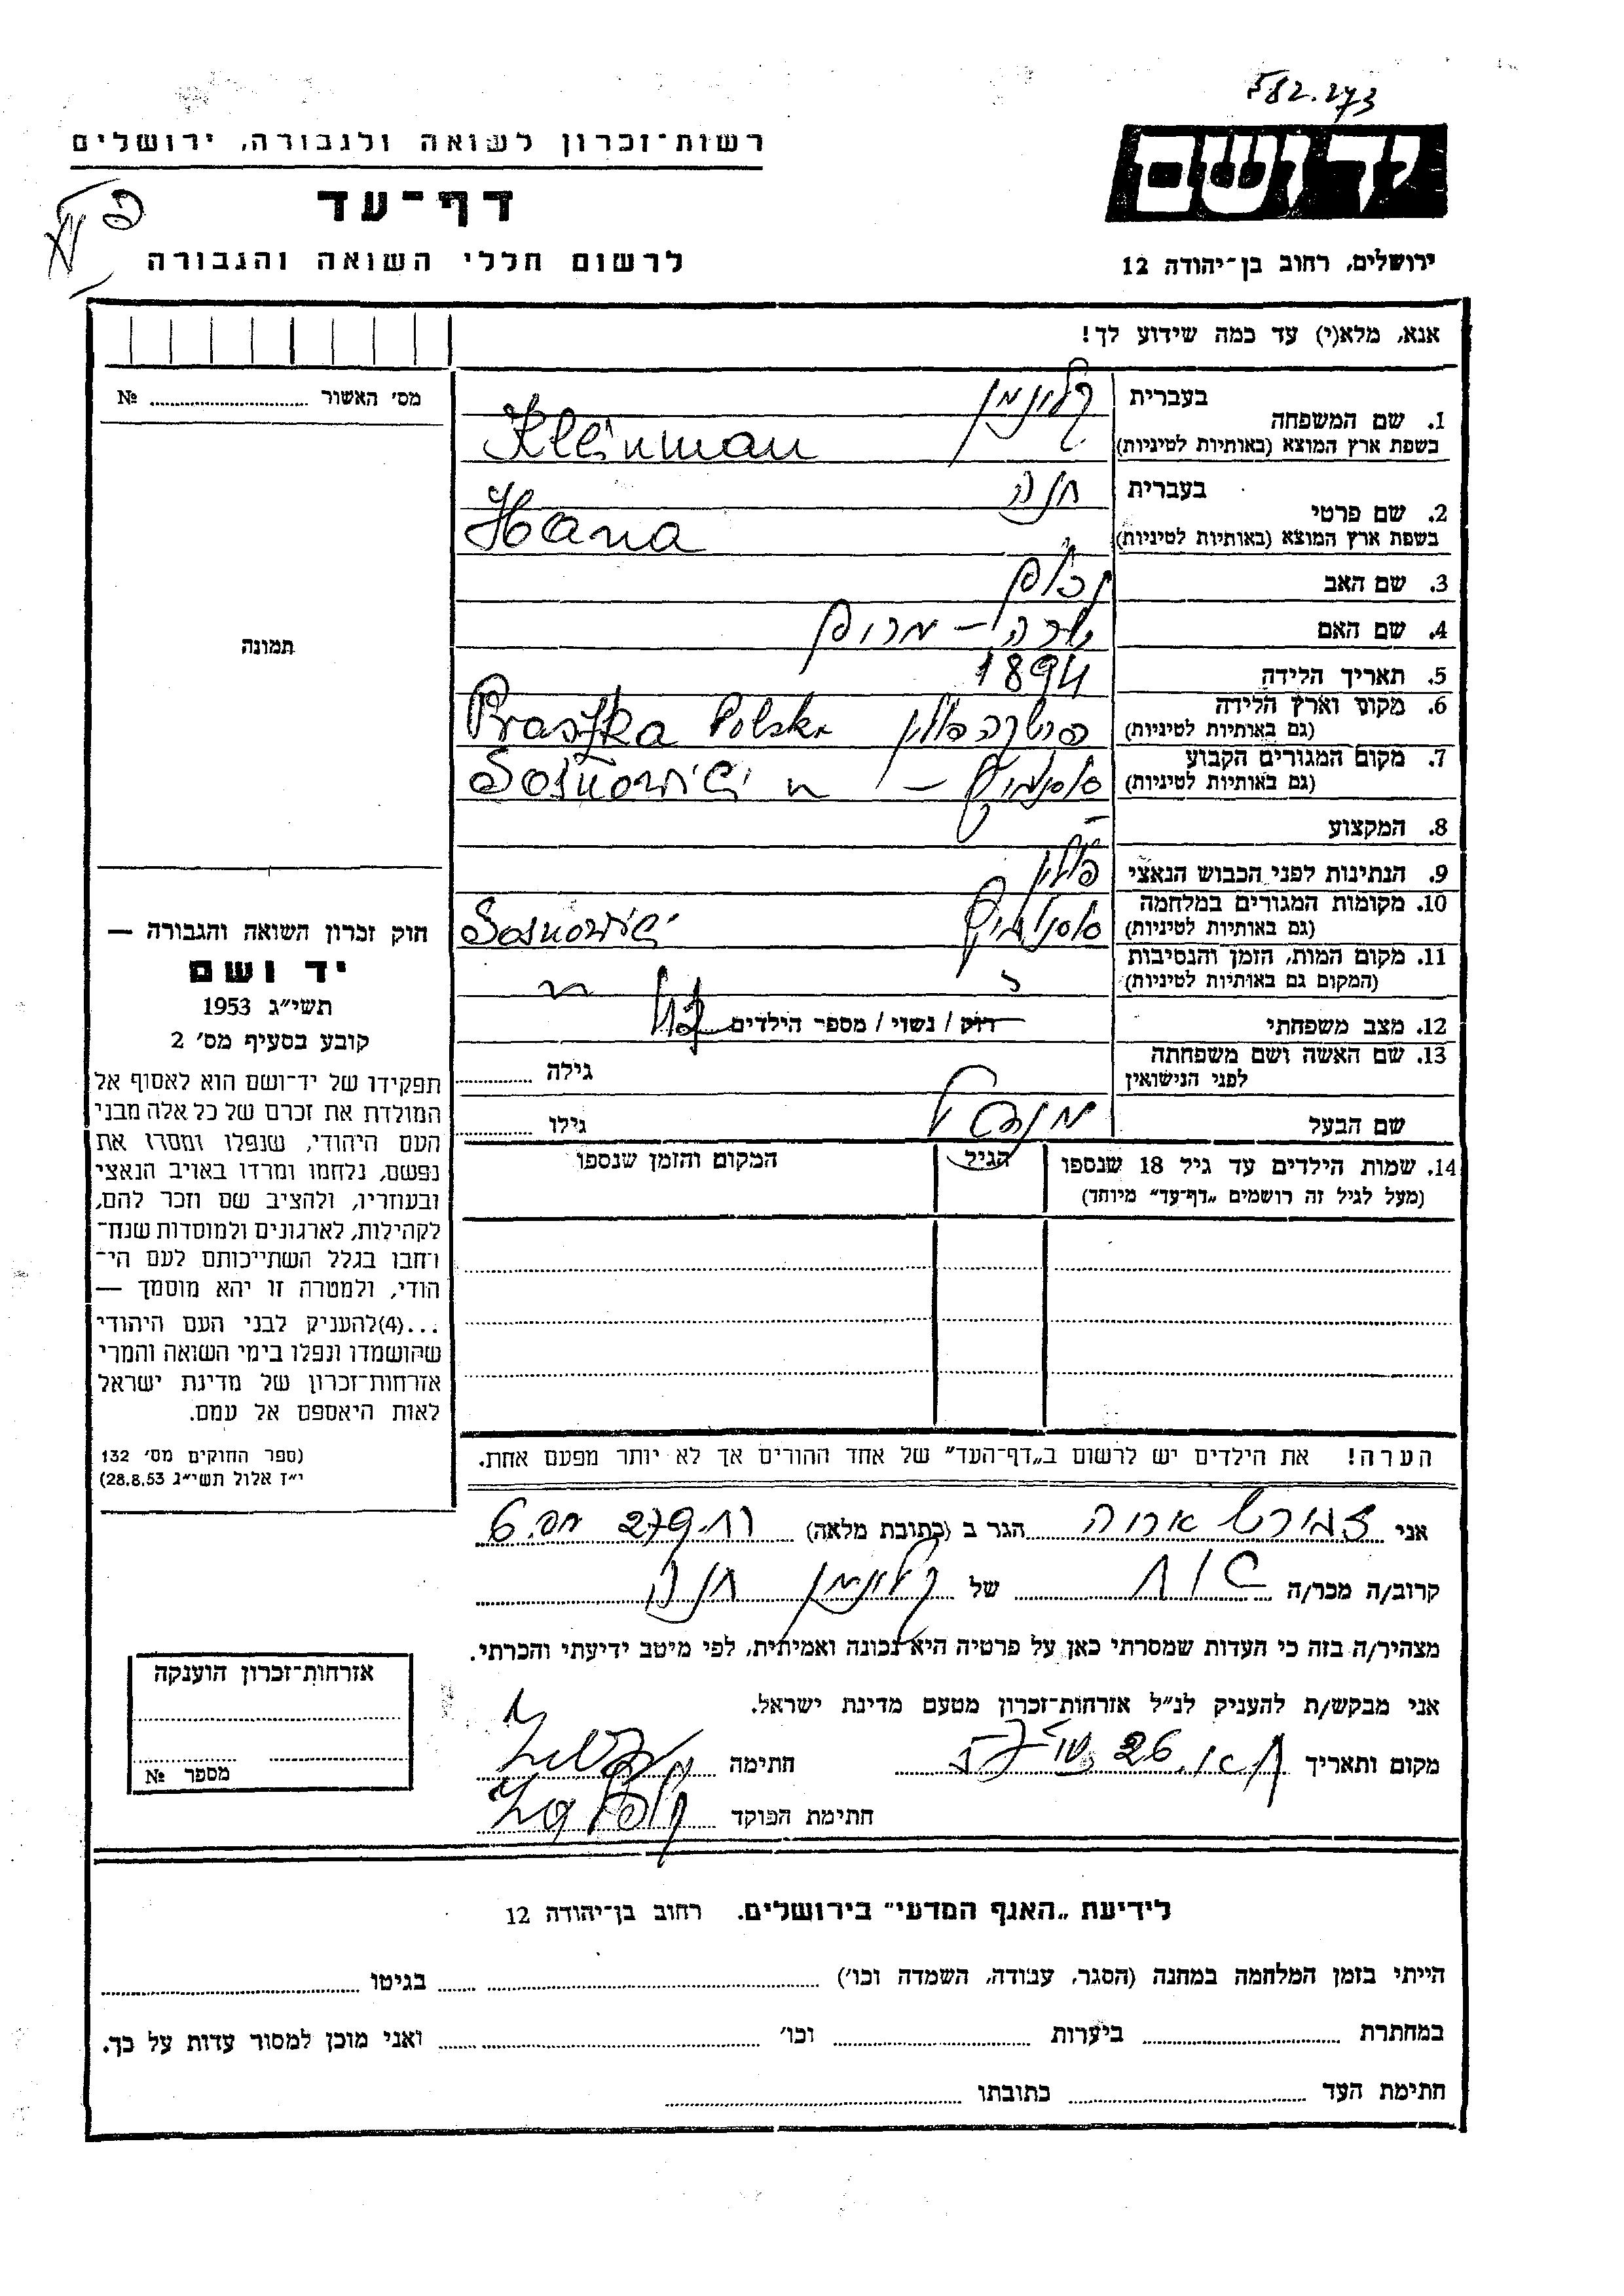 582.273
רשות־זכרון לשואה ולגבורה, ירושלים
יד ושם
דף־עד
ירושלים, רחוב בן־יהודה 12
לרשום חללי השואה והגבורה
אנא, מלא(י) עד כמה שידוע לך!
מס' האשור № ..........
1. שם המשפחה בעברית קליינמן
בשפת ארץ המוצא (באותיות לטיניות) Kleinman
2. שם פרטי בעברית חנה
בשפת ארץ המוצא (באותיות לטיניות) Hana
3. שם האב
4. שם האם שרה –
5. תאריך הלידה 1894
6. מקום וארץ הלידה (גם באותיות לטיניות) פרשקה פולין Praszka Polska
7. מקום המגורים הקבוע (גם באותיות לטיניות) סוסנוביץ – Sosnowiec
8. המקצוע –
9. הנתינות לפני הכבוש הנאצי פולין
10. מקומות המגורים במלחמה (גם באותיות לטיניות) סוסנוביץ Sosnowiec
11. מקום המות, הזמן והנסיבות (המקום גם באותיות לטיניות)
12. מצב משפחתי רווק / נשוי / מספר הילדים
13. שם האשה ושם משפחתה לפני הנישואין גילה ..........
שם הבעל מנדל גילו ..........
14. שמות הילדים עד גיל 18 שנספו הגיל המקום והזמן שנספו
(מעל לגיל זה רושמים „דף־עד” מיוחד)
תמונה
חוק זכרון השואה והגבורה —
יד ושם
תשי״ג 1953
קובע בסעיף מס' 2
תפקידו של יד־ושם הוא לאסוף אל
המולדת את זכרם של כל אלה מבני
העם היהודי, שנפלו ומסרו את
נפשם, נלחמו ומרדו באויב הנאצי
ובעוזריו, ולהציב שם וזכר להם,
לקהילות, לארגונים ולמוסדות שנח־
רחבו בגלל השתייכותם לעם הי־
הודי, ולמטרה זו יהא מוסמך —
...(4)להעניק לבני העם היהודי
שהושמדו ונפלו בימי השואה והמרי
אזרחות־זכרון של מדינת ישראל
לאות היאספם אל עמם.
(ספר החוקים מס' 132
י״ז אלול תשי״ג 28.8.53)
הערה! את הילדים יש לרשום ב„דף־העד” של אחד ההורים אך לא יותר מפעם אחת.
אני הגר ב (כתובת מלאה)
קרוב/ה מכר/ה של קליינמן חנה
מצהיר/ה בזה כי העדות שמסרתי כאן על פרטיה היא נכונה ואמיתית, לפי מיטב ידיעתי והכרתי.
אני מבקש/ת להעניק לנ״ל אזרחות־זכרון מטעם מדינת ישראל.
מקום ותאריך חתימה
חתימת הפוקד
אזרחות־זכרון הוענקה
מספר №
לידיעת „האגף המדעי” בירושלים. רחוב בן־יהודה 12
הייתי בזמן המלחמה במחנה (הסגר, עבודה, השמדה וכו') .......... בגיטו ..........
במחתרת .......... ביערות .......... וכו' .......... ואני מוכן למסור עדות על כך.
חתימת העד .......... כתובתו ..........